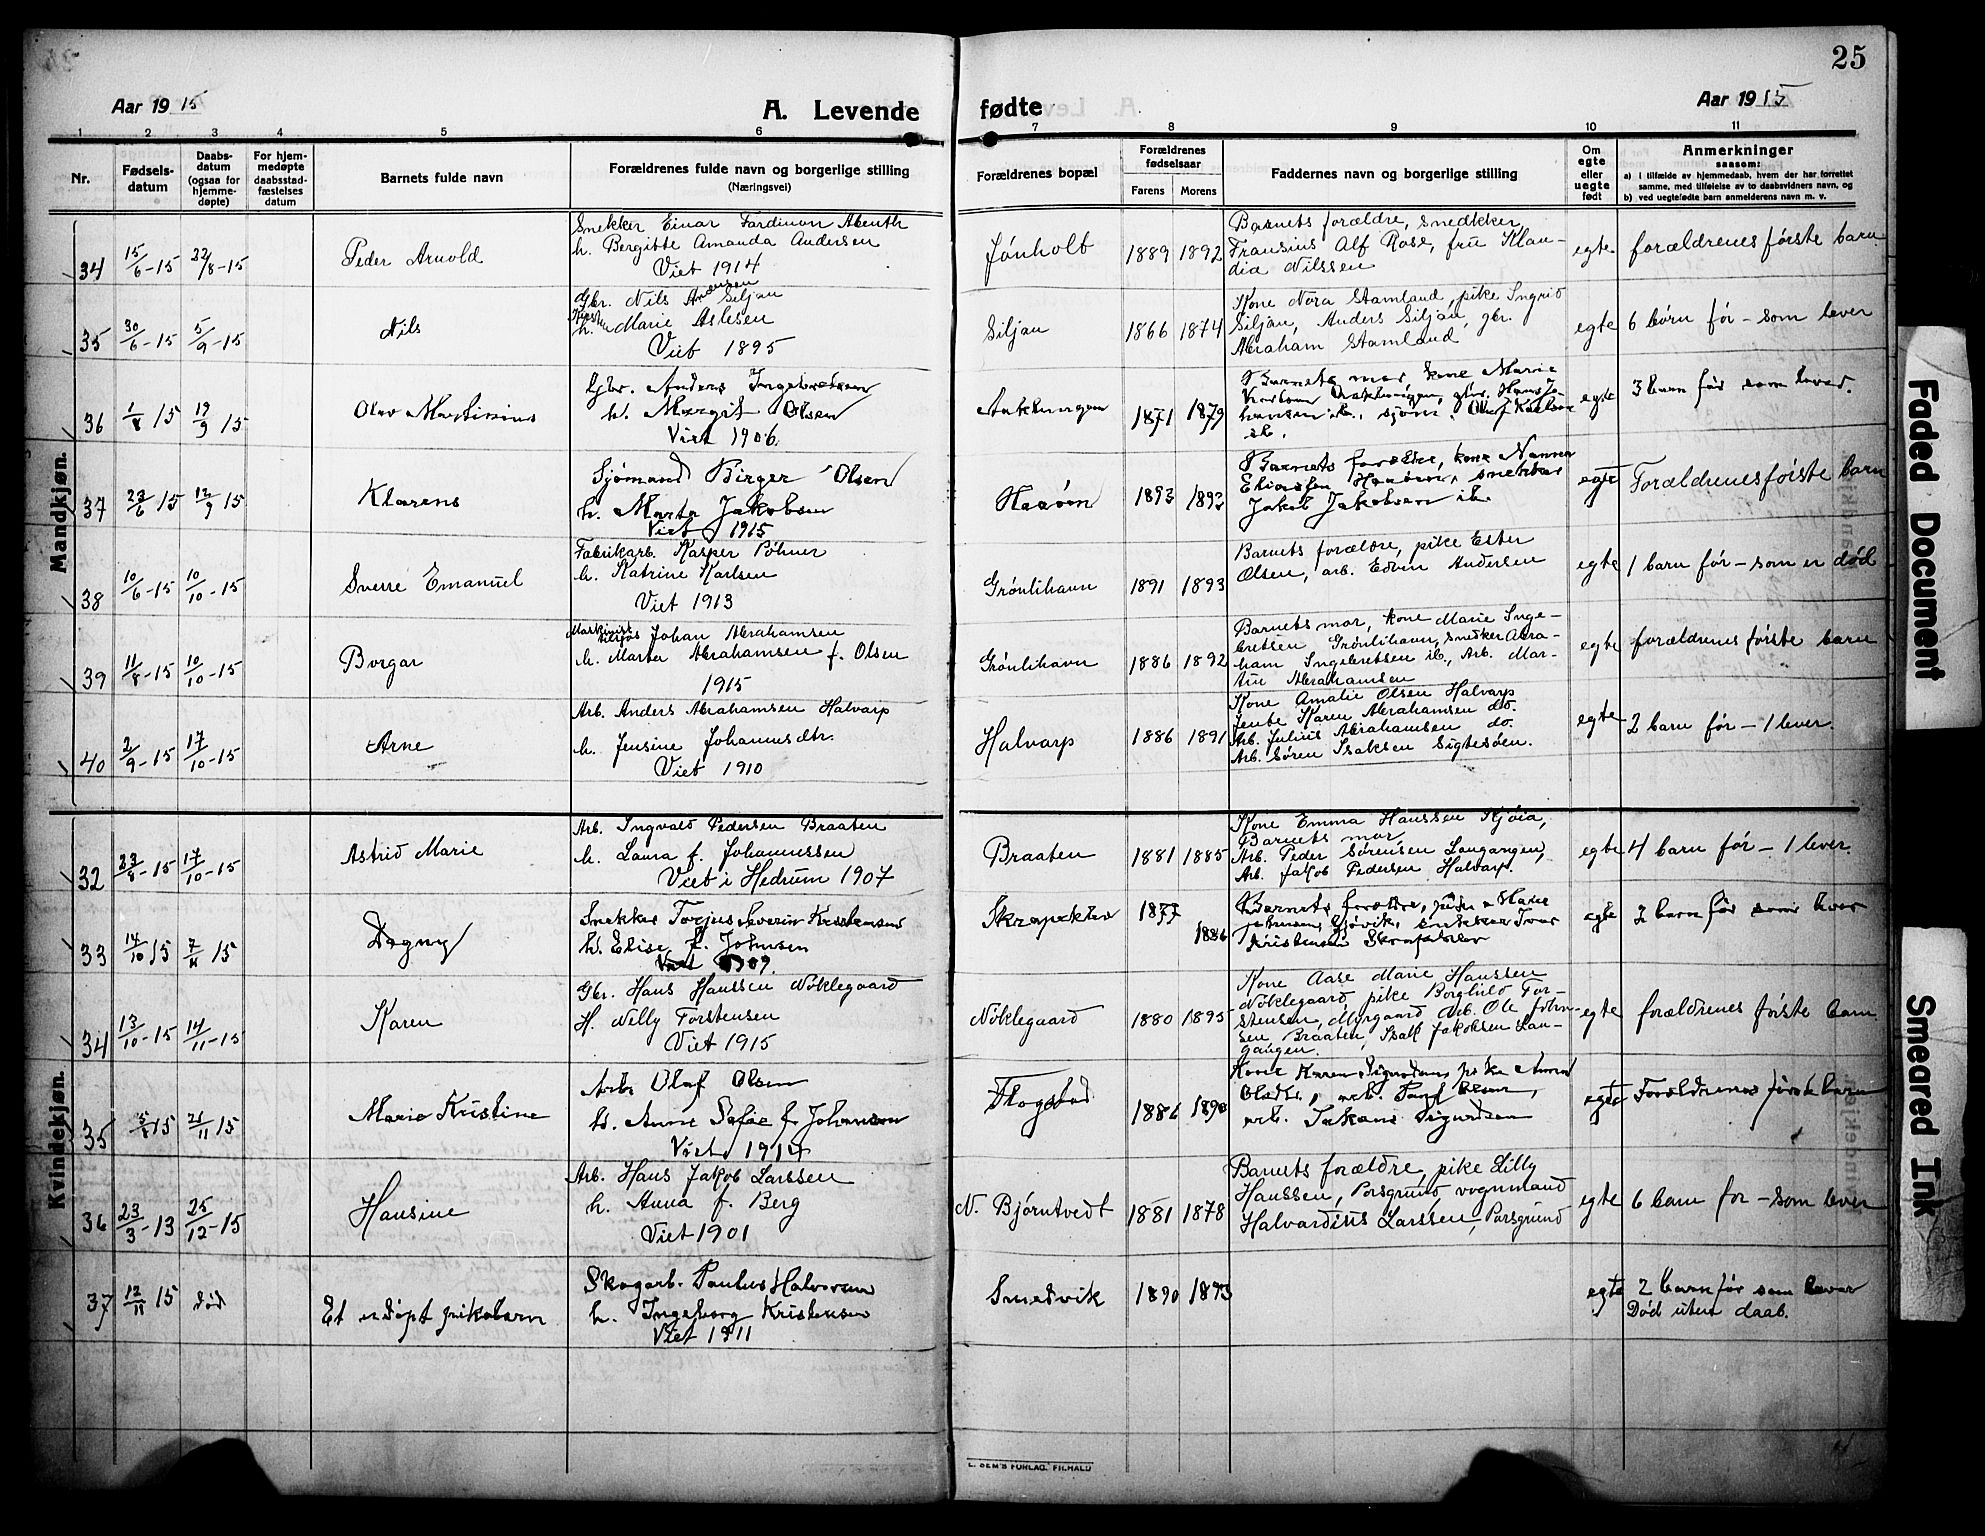 25
Aar 1915
A. Levende
fødte
Aar 1915
1 2 3 4 5 6 7 8 9 10 11
Nr.
Fødsels-
datum
Daabs-
datum
(ogsaa for
hjemme-
døpte)
For hjem-
medøpte
daabsstad-
fæstelses
datum
Barnets fulde navn
Forældrenes fulde navn og borgerlige stilling
(Næringsvei)
Forældrenes bopæl
Forældrenes
fødselsaar
Farens
Morens
Faddernes navn og borgerlige stilling
Om
egte
eller
uegte
født
Anmerkninger
saasom:
a) i tilfælde av hjemmedaab, hvem der har forrettet
samme, med tilføielse av to daabsvidners navn, og
b) ved uegtefødte barn anmelderens navn m. v.
Mandkjøn.
34
15/6-15
22/8-15
Peder Arnold
Snekker Einar Ferdinan Abenth
h. Bergitte Amanda Andersen
Viet 1914
Jønholt
1889
1892
Barnets forældre, snedkker
Fransius Alf Rose, frú Klau-
dia Nilssen
egte
forældrenes første barn
35
30/6-15
5/9-15
Nils
Gbr. Nils Andersen Siljan
h. Marie Aslesen
Viet 1895
Siljan
1866
1874
Kone Nora Stamland, pike Ingrid
Siljan, Anders Siljan, gbr.
Abraham Stamland
egte
6 børn før - som lever
36
1/8 15
19/9 15
Olav Martinius
Gbr. Anders Ingebretsen
h. Margit Olsen
Viet 1906.
Aaklungen
1871
1879
Barnets mor, kone Marie
egte
3 barn før som lever.
37
23/6 15
12/9 15
Klarens
Sjømand Birger Olsen
h. Marta Jakobsen
Viet 1915
Haaøen
1893
1893
Barnets forældre, kone Nanna
Eliassen Haaøen, snekker
Jakob Jakobsen ib.
egte
Forældrenes første barn
38
10/6-15
10/10-15
Sverre Emanuel
Fabrikarb. Kasper Pøhner
h. Katrine Karlsen
Viet 1913
Grønlihavn
1891
1893
Barnets forældre, pike Ester
Olsen, arb. Edvin Andersen
egte
1 barn før - som er død
39
11/8-15
10/10-15
Borgar
Johan Abrahamsen
h. Marta Abrahamsen f. Olsen
1915
Grønlihavn
1886
1892
Barnets mor, kone Marie Inge-
bretsen Grønlihavn, snekker Abra-
ham Ingebretsen ib., Arb. Mar-
tin Abrahamsen
egte
forældrenes første barn
40
2/9-15
17/10-15
Arne
Arb. Anders Abrahamsen Halvarp
h. Jensine Johannesdtr.
Viet 1910
Halvarp
1886
1891
Kone Amalie Olsen Halvarp
Jente Karen Abrahamsen do.
Arb. Julius Abrahamsen do.
Arb. Søren Isaksen Sigtesøen.
egte
2 barn før - 1 lever.
Kvindekjøn.
32
23/8-15
17/10-15
Astrid Marie
Arb. Ingvald Pedersen Braaten
h. Laura f. Johannessen
Viet i Hedrum 1907
Braaten
1881
1885
Kone Emma Hanssen Kjøia,
Barnets mor,
Arb. Peder Sørensen Langangen,
Arb. Jakob Pedersen Halvarp.
egte
4 barn før - 1 lever.
33
14/10 15
7/11 15
Dagny
Snekker Torjus Severin Kristensen
h. Elise f. Johnsen
Viet 1909.
Skrapeklev
1877
1886
egte
2 barn før som lever
34
13/10-15
14/11-15
Karen
Gbr. Hans Hanssen Nøklegaard
H. Nilly Torstensen
Viet 1915
Nøklegaard
1880
1893
Kone Aase Marie Hanssen
Nøklegaard, pike Borghild Tor-
stensen, Myrgaard, Arb. Ole John-
sen Braaten, Isak Jakobsen Lan-
gangen.
egte
forældrenes første barn
35
5/8 15
21/11 15
Marie Kristine
Arb. Olaf Olsen
h. Anne Sofie f. Johansen
Viet 1914
Flogstad
1886
1890
egte
Forældrenes første barn
36
23/3-13
25/12-15
Hansine
Arb. Hans Jakob Larssen
h. Anna f. Berg
Viet 1901
N. Bjørntvedt
1881
1878
Barnets forældre, pike Lilly
Hanssen, Porsgrund, vognmand
Halvardius Larssen, Porsgrund
egte
6 barn før - som lever
37
12/11 15
død
Et udøpt pikebarn
Skogarb. Paulus Halvorsen
h. Ingeborg Kristensen
Viet 1911
Smedvik
1890
1893
egte
2 barn før som lever
Død uten daab.
E. SEM'S FORLAG, FR.HALD
Faded Document
Smeared Ink